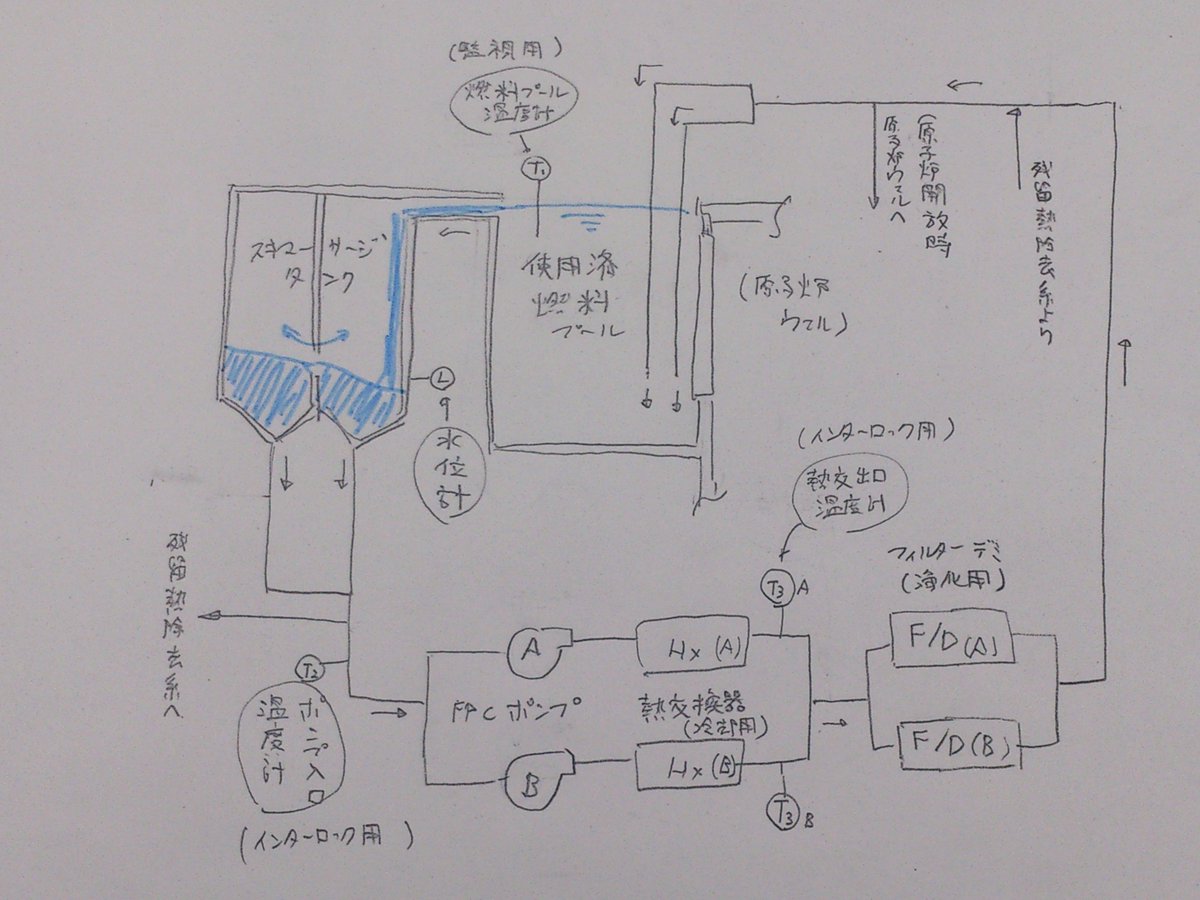 (監視用)
燃料プール
温度計
T1
スキマーサージ
タンク
使用済
燃料
プール
(原子炉
ウェル)
(原子炉開放時
原子炉ウェルへ
残留熱除去系より
L
水位計
(インターロック用)
熱交出口
温度計
T3 A
フィルターデミ
(浄化用)
残留熱除去系へ
T2
ポンプ入口
温度計
(インターロック用)
A
FPCポンプ
B
Hx(A)
熱交換器
(冷却用)
Hx(B)
T3 B
F/D(A)
F/D(B)